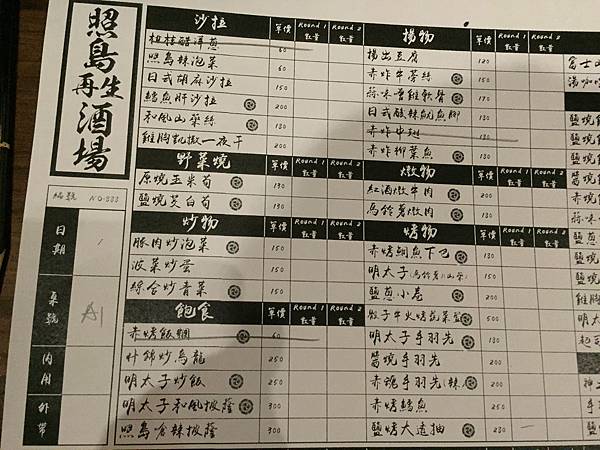 照島再生酒場
編號 NO.333
日期
桌號 A1
內用
外帶
沙拉 單價 Round 1 數量 Round 2 數量
桂林醋洋蔥 60
照島辣泡菜 60
日式胡麻沙拉 150
鱈魚肝沙拉 200
和風山藥絲 130
雞胸凱撒一夜干 200
野菜燒 單價 Round 1 數量 Round 2 數量
原燒玉米筍 130
鹽燒茭白筍 130
炒物 單價 Round 1 數量 Round 2 數量
豚肉炒泡菜 150
菠菜炒蛋 150
綜合炒青菜 150
飽食 單價 Round 1 數量 Round 2 數量
赤烤飯糰 60
什錦炒烏龍 250
明太子炒飯 250
明太子和風披薩 300
照島嗆辣披薩 300
揚物 單價 Round 1 數量 Round 2 數量
揚出豆腐 120
赤炸牛蒡絲 150
蒜味香雞軟骨 170
日式酸辣魷魚腳 130
赤炸中翅 130
赤炸柳葉魚 130
燉物 單價 Round 1 數量 Round 2 數量
紅酒燉牛肉 200
馬鈴薯燉肉 130
烤物 單價 Round 1 數量 Round 2 數量
赤烤鯛魚下巴 130
明太子(馬鈴薯)(山藥) 150
鹽蔥小卷 200
骰子牛火烤蔬菜盤 500
明太子手羽先 130
醬燒手羽先 100
赤魂手羽先(辣) 200
赤烤鱈魚 250
鹽烤大透抽 230
富士山
湯咖
鹽燒
鹽燒
鹽燒
醬燒
蒜味
鹽蔥
鹽燒
雞腿
明太
起司